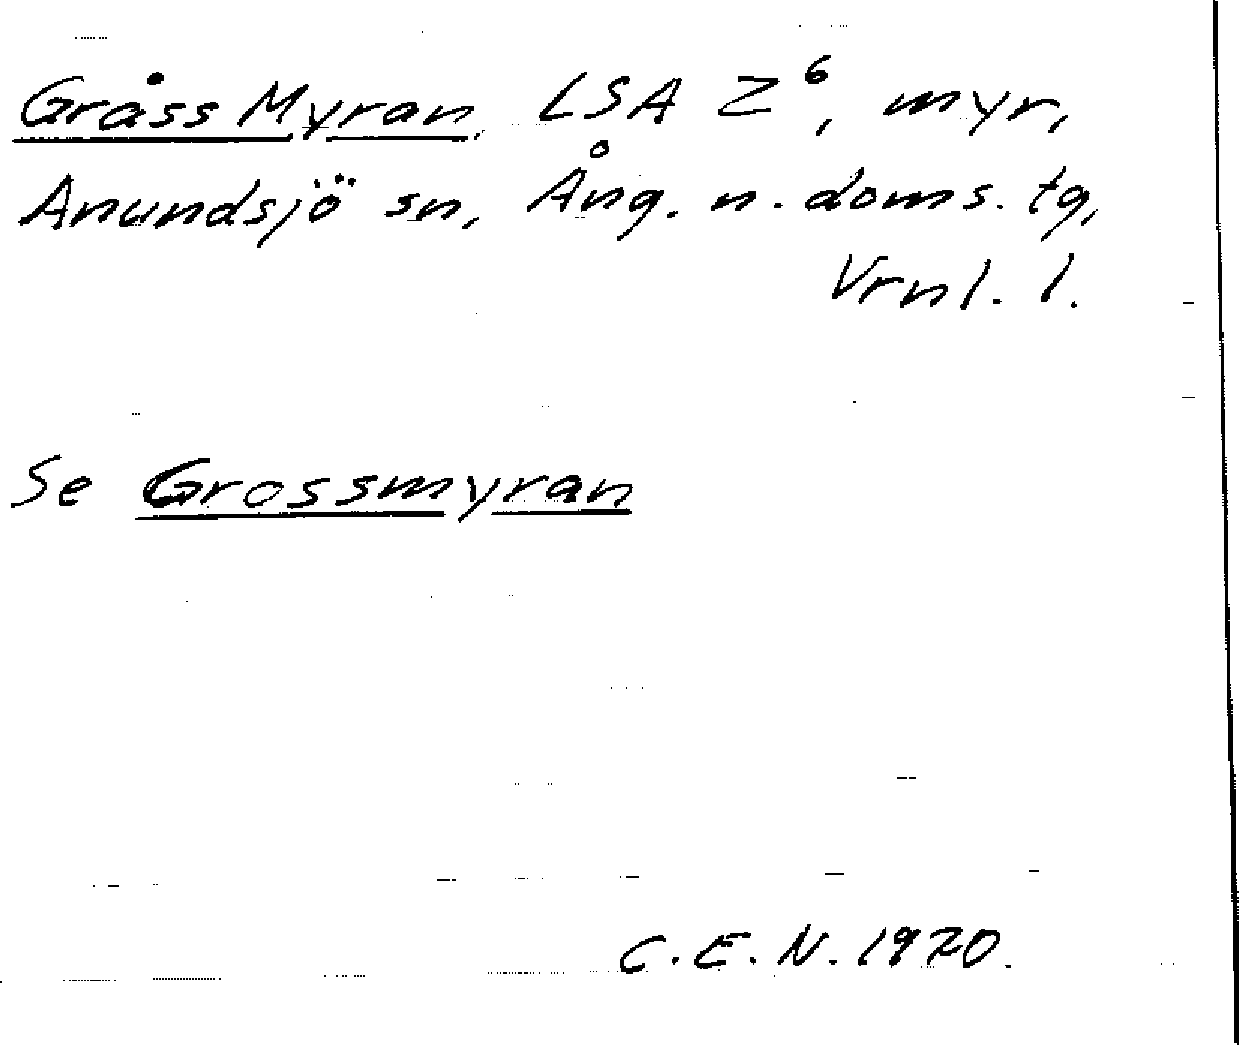 Gråss Myran, LSA Z⁶, myr,
Anundsjö sn, Ång. n. doms. tg,
Vrnl. l.
Se Grossmyran
C.E.N. 1920.